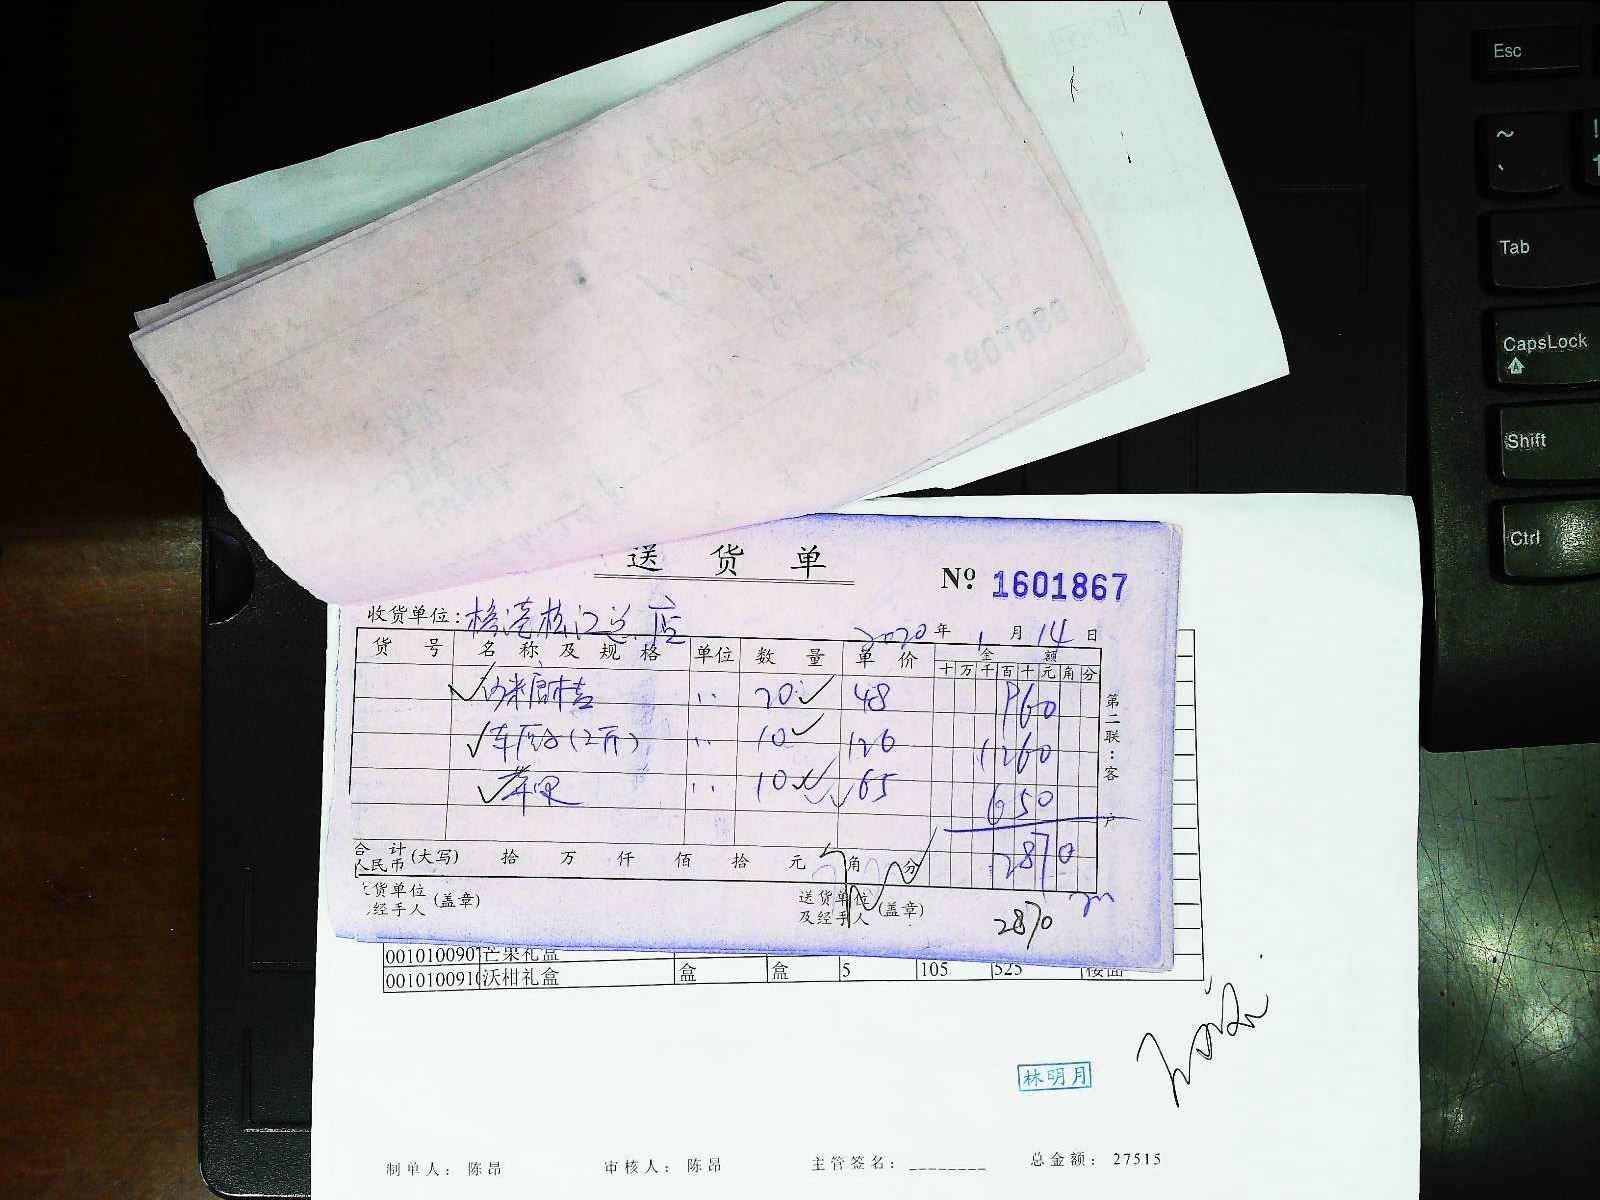 送货单
Nº 1601867
收货单位:
2020年1月14日
货号 名称及规格 单位 数量 单价 金额
十万千百十元角分
20 48 960
车厘子(2斤) 10 126 1260
10 65 650
2870
合计人民币(大写) 拾 万 仟 佰 拾 元 角 分
货单位经手人(盖章) 送货单位及经手人(盖章)
2870
第二联:客户
0010100901 芒果礼盒
0010100910 沃柑礼盒 盒 盒 5 105 525 楼面
林明月
制单人: 陈昂 审核人: 陈昂 主管签名: ________ 总金额: 27515
Esc
~
`
!
1
Tab
CapsLock
Shift
Ctrl